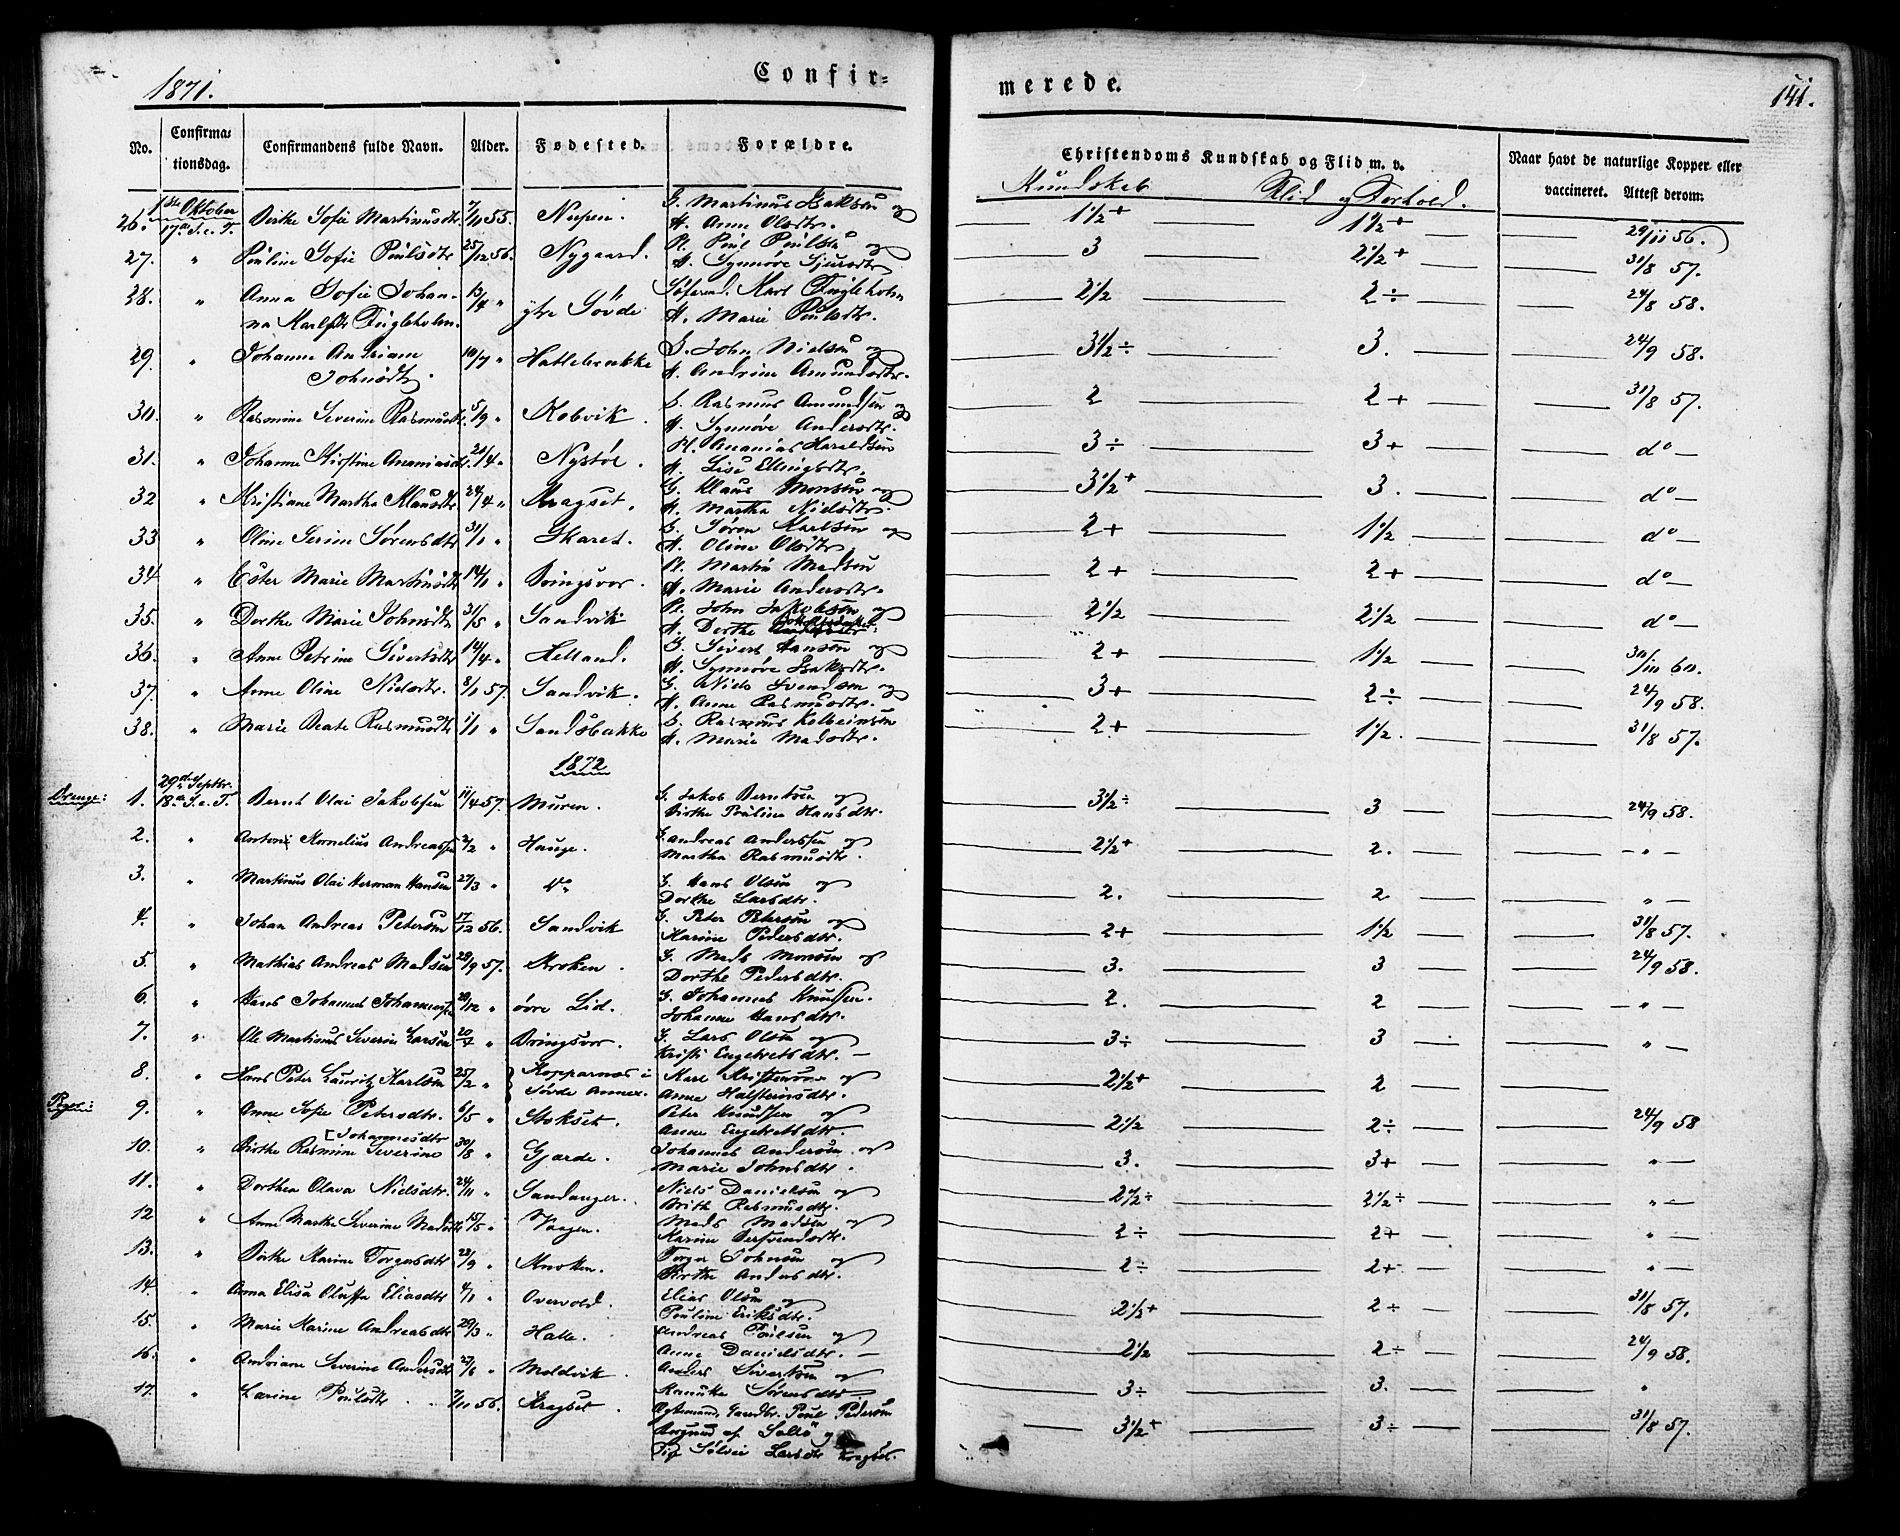 1871.
Confir=
merede.
141.
No.
Confirma=
tionsdag.
Confirmandens fulde Navn.
Alder.
Fødested.
Forældre.
Christendoms Kundskab og Flid m. v.
Kundskab
Flid og Forhold.
Naar havt de naturlige Kopper eller
vaccineret. Attest derom.
26. 1ste Oktober 17de S. e. T. Birthe Sofie Martinusdtr 7/11 55. Nupen. G. Martinus Isaksen og 1½+ 1½+ 29/11 56.
H. Anne Olsdtr.
27. " Pouline Sofie Poulsdtr 25/12 56. Nygaard. Pl. Poul Poulsen og 3 2½+ 31/8 57.
H. Synnøve Sjursdtr
28. " Anna Sofie Johan- 13/4 " ytre Søvde Karl Fugleholm 2½ 2÷ 24/8 58.
na Karlsdtr Fugleholm. H. Marie Poulsdtr.
29. " Johanne Andriane 10/7 " Hattebrekke S. John Nielsen og 3½÷ 3. 24/9 58.
Johnsdtr. H. Andrine Amundsdtr.
30. " Rasmine Severine Rasmusdtr. 5/9 " Kobvik. S. Rasmus Amundsen og 2 2+ 31/8 57.
H. Synnøve Andersdtr.
31. " Johanne Kirstine Ananiasdtr. 20/4 " Nystøl. Pl. Ananias Haraldsen 3÷ 3+ do —
H. Lise Ellingsdtr.
32 " Kristiane Martha Klausdtr 24/4 " Kragset. G. Klaus Monsen og 3½+ 3. do —
H. Martha Nielsdtr.
33 " Oline Serine Sørensdtr 31/1 " Skaret. G. Søren Karlsen og 2+ 1½ do —
H. Oline Olsdtr
34 " Ester Marie Martinsdtr 14/1 " Bringsvor. Pl. Martin Madsen 2+ 2+ do —
H. Marie Andersdtr.
35. " Dorthe Marie Johnsdtr 31/5 " Sandvik Pl. John Jakobsen og 2½ 2½ do —
H. Dorthe
36. " Anne Petrine Sivertsdtr 14/4 " Helland. G. Sivert Hansen og 2+ 1½ 30/10 60.
H. Synnøve Isaksdtr.
37. " Anne Oline Nielsdtr. 8/1 57. Sandvik. G. Niels Svendsen og 3+ 2÷ 24/9 58.
H. Anne Rasmusdtr.
38. " Marie Beate Rasmusdtr 1/1 " Sandsbakke S. Rasmus Kolbeinsen 2+ 1½. 31/8 57.
H. Marie Madsdtr.
1872
Drenge: 1. 29de Septbr. 18de S. e. T. Bernt Olai Jakobsen 11/4 57. Muren. G. Jakob Berntsen og 3½÷ 3 24/9 58.
Birthe Pouline Hansdtr.
2. " Anton Kornelius Andreassen 2/2 " Hauge. G. Andreas Anderssen og 2½+ 2. — " —
Martha Rasmusdtr.
3. " Martinus Olai Herman Hansen 27/3 " do G. Hans Olsen og 2. 2 " —
Dorthe Larsdtr.
4. " Johan Andreas Petersen 17/12 56. Sandvik G. Peter Petersen og 2+ 1½ 31/8 57.
Karine Pedersdtr.
5. " Mathias Andreas Madsen 29/9 57. Kroken. G. Mads Monsen og 3. 3 24/9 58.
Dorthe Pedersdtr.
6. " Hans Johannes Johannessen 29/12 " øvre Lid. G. Johannes Knudsen. 2. 2 — " —
Johanne Hansdtr.
7. " Ole Martinus Severin Larsen 20/7 " Bringsvor. G. Lars Olsen og 3÷ 3 " —
Kristi Engebretsdtr. —
8. " Hans Peter Lauritz Karlsen 25/2 " Kopparnæs i Karl Kristensen og 2½+ 2
Søvde Annex. Anne Halsteinsdtr.
Piger: 9. " Anne Sofie Petersdtr. 6/5 " Stokset. Peter Knudsen og 2½ 2÷ 24/9 58
Anne Engebretsdtr.
[Johannesdtr
10. " Birthe Rasmine Severine 30/8 " Gjærde. Johannes Andersen og 3. 3+ " —
Marie Johnsdtr.
11. " Dorthea Olava Nielsdtr. 24/11 " Sandanger. Niels Danielsen og 2½÷ 2½÷ " —
Brithe Rasmusdtr.
12 " Anne Marthe Severine Madsdtr 15/5 " Vaagen. Mads Madsen og 2÷ 2+ " —
Karine
13. " Birthe Karine Torgersdtr 22/9 " Kroken. Torger Johnsen og 2÷ 2+ " —
Birthe Andersdtr.
14. " Anna Elisa Oluffa Eliasdtr 4/1 " Overvold. Elias Olsen og 2½+ 2÷ 31/8 57.
Pouline Eriksdtr.
15. " Marie Karine Andreasdtr 29/3 " Halle. Andreas Poulsen og 2½ 2÷ 24/9 58.
Anne Danielsdtr. —
16. " Andriane Severine Andersdtr 27/6 " Moldvik. Anders Sivertsen og 3÷ 3. "
Sørensdtr
17. " Larine Poulsdtr 7/11 56. Kragset. Ugtemand, Gaardbr. Poul Pedersen 3½+ 3÷ 31/8 57.
og
Pig Sølvei Larsdtr Kragset.